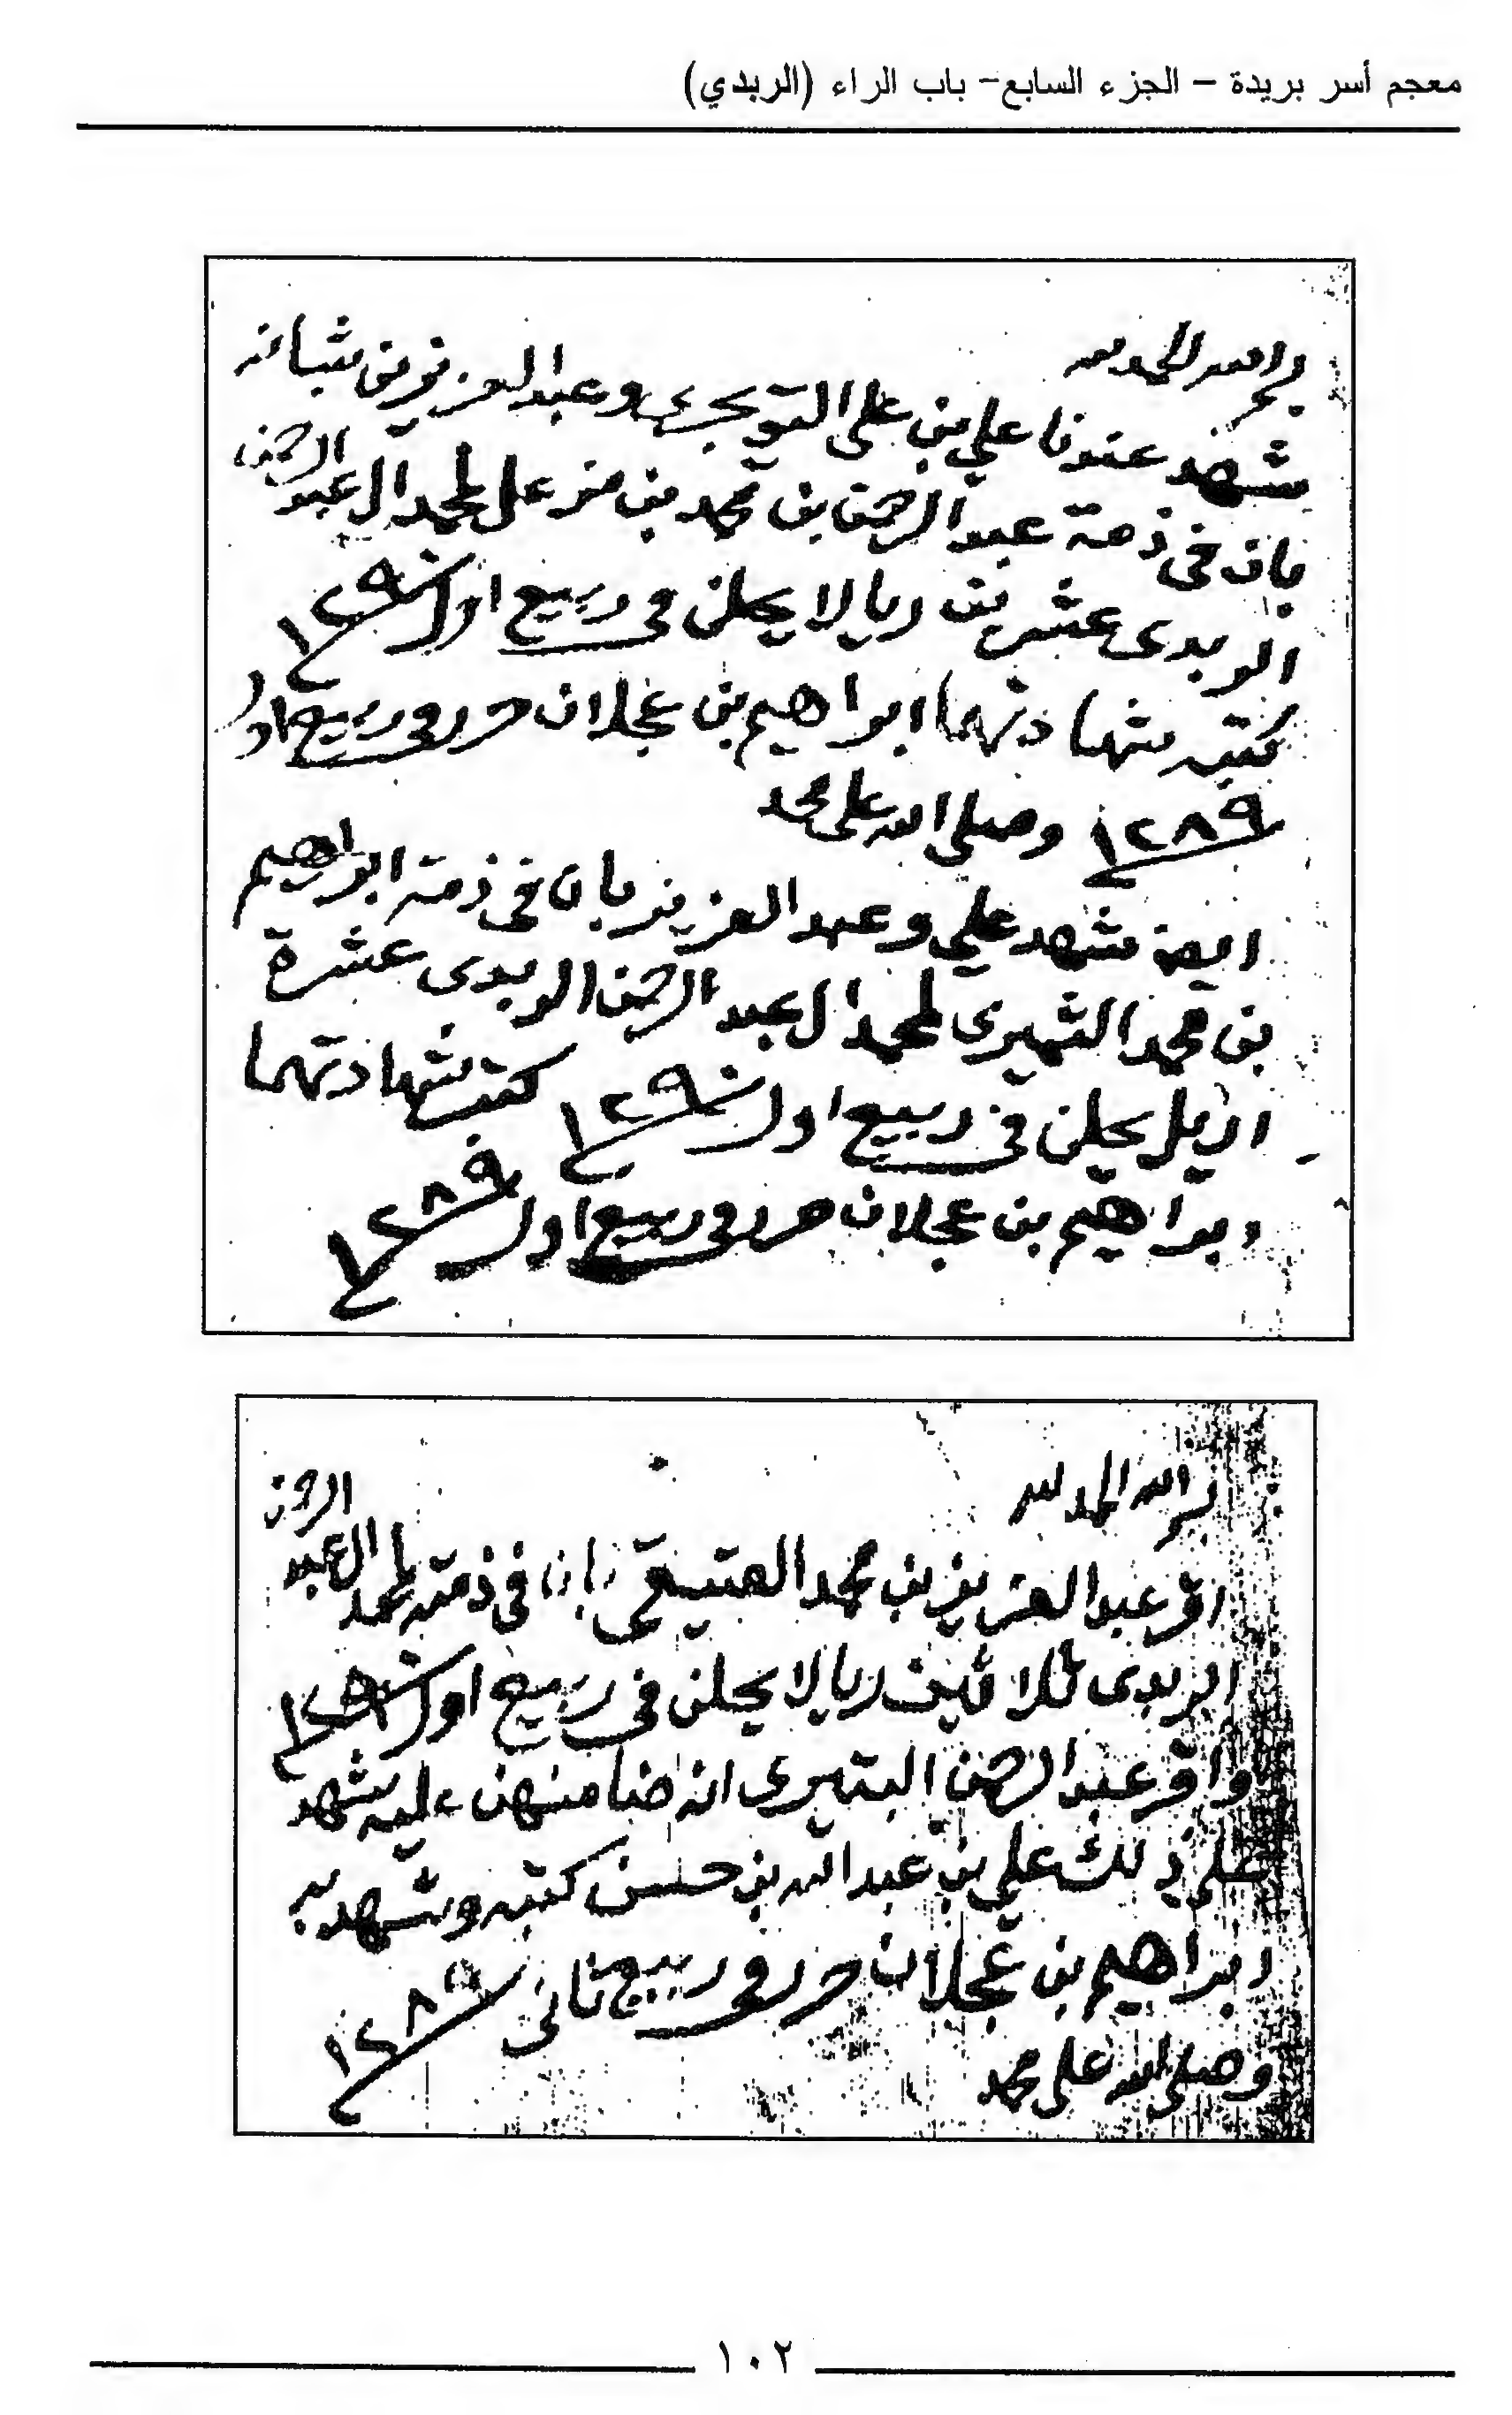 معجم أسر بريدة – الجزء السابع– باب الراء (الربدي)
الحمد لله
شهد عندنا علي بن علي التويجري وعبدالعزيز بن شبانه
بان في ذمة عبدالرحمن بن محمد بن لمحمد ال عبد الرحمن
الربدي عشرين ريالا يحلن في ربيع اول ١٢٩٠
كتبه شهادتهما ابراهيم بن عجلان حرر في ربيع اول
١٢٨٩ وصلى الله على محمد
ايضا شهد علي وعبدالعزيز بان في ذمة ابراهيم
بن محمد لمحمد ال عبدالرحمن الربدي عشرة
اريل يحلن في ربيع اول ١٢٩٠ كتب شهادتهما
ابراهيم بن عجلان حرر في ربيع اول ١٢٨٩
الحمد لله
اقر عبدالعزيز بن محمد بان في ذمته لمحمد ال عبد الرحمن
الربدي ثلاثين ريالا يحلن في ربيع اول
واقر عبدالرحمن البتيري انه ضامنهن عليه شهد
على ذلك علي بن عبدالله بن حسن كتبه وشهد به
ابراهيم بن عجلان حرر في ربيع ثاني ١٢٨٩
وصلى الله على محمد
١٠٢